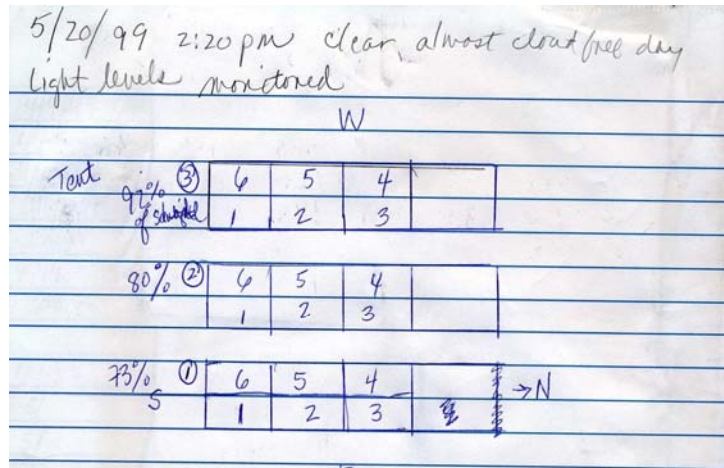 5/20/99 2:20 pm clear, almost cloud free day
Light levels monitored
W
Tent 92% ③ 6 5 4
of 1 2 3
80% ② 6 5 4
1 2 3
73% ① 6 5 4
→N
S 1 2 3